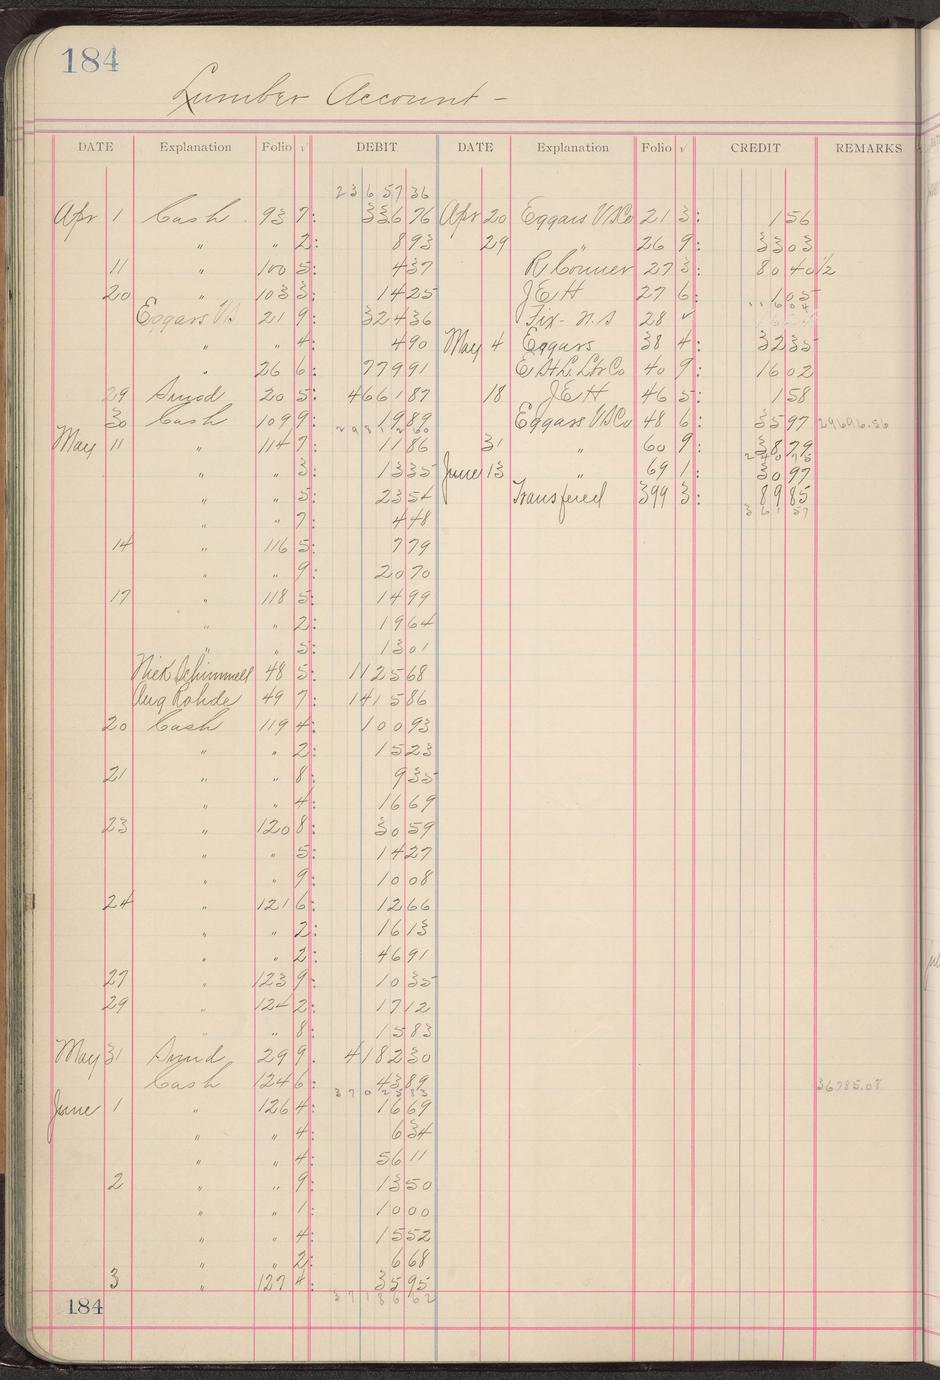 184
Lumber Account -
DATE Explanation Folio √ DEBIT DATE Explanation Folio √ CREDIT REMARKS
23657 36
Apr 1 Cash 93 7: 336 76 Apr 20 Eggars V S Co 21 3: 1 56
" " 2: 8 93 29 " 26 9: 33 03
11 " 100 5: 4 37 R Conner 27 3: 80 40 1/2
20 " 103 3: 14 25 J E H 27 6: 1 05
Eggars V S 21 9: 324 36 Fix- n.s 28 ✓
" " 4: 4 90 May 4 Eggars 38 4: 32 35
" 26 6: 779 91 E St L Lbr Co 40 9: 16 02
29 Sund 20 5: 4661 87 18 J E H 46 5: 1 58
30 Cash 109 9: 19 89 Eggars V S Co 48 6: 35 97 29696.56
May 11 " 114 7: 11 86 31 " 60 9: 38 79
" " 3: 13 35 June 13 " 69 1: 30 97
" " 5: 23 54 Transfered 399 3: 89 85
" " 7: 4 48 361 57
14 " 116 5: 7 79
" " 9: 20 70
17 " 118 5: 14 99
" " 2: 19 64
" " 5: 13 01
Nick Schimmell 48 5: 1125 68
Aug Rohde 49 7: 1415 86
20 Cash 119 4: 100 93
" " 2: 15 23
21 " " 8: 9 35
" " 4: 16 69
23 " 120 8: 30 59
" " 5: 14 27
" " 9: 10 08
24 " 121 6: 12 66
" " 2: 16 13
" " 2: 46 91
27 " 123 9: 10 35
29 " 124 2: 17 12
" " 8: 15 83
May 31 Sund 29 9. 4182 30
Cash 124 6: 43 89 36785.08
37023 83
June 1 " 126 4: 16 69
" " 4: 6 34
" " 4: 56 11
2 " " 9: 13 50
" " 1: 10 00
" " 4: 15 52
" " 2: 6 68
3 " 127 4: 35 95
37186 62
184